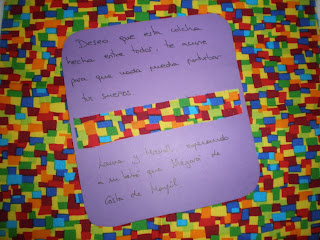 Deseo que esta colcha
hecha entre todos, te arrope
para que nada pueda perturbar
tus sueños.
Laura y, esperando
a su bebé que llegará de
Costa de Marfil.